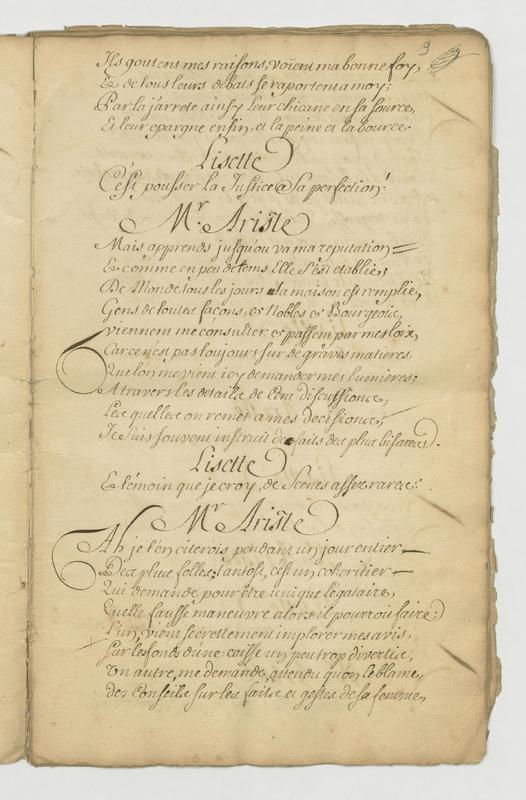 9
Ils goutent mes raisons, voient ma bonne foy,
Et de tous leurs debats se raportent a moy;
Par la j'arrete ainsy leur chicane en sa source,
Et leur epargne enfin, et la peine et la bource.
Lisette
C'est pousser la Justice a sa perfection!
Mr. Ariste
Mais apprends jusqu'ou va ma reputation
Et comme en peu de tems Elle s'est etablie,
De Monde tous les jours la maison est remplie,
Gens de toutes façons, et Nobles et Bourgeois,
viennent me consulter et passent par mes loix,
Car ce n'est pas toujours sur de graves matieres
Que l'on me vient icy demander mes lumieres;
A travers les details de leurs discussions,
Les quelles on remet a mes decisions,
Je suis souvent instruit des faits des plus bisares.
Lisette
Et témoin que je croy, de Scenes assez rares!
Mr Ariste
Ah je t'en citerois pendant un jour entier
Des plus folles; tantost, c'est un coheritier
Qui demande pour être unique légataire,
Quelle fausse manœuvre alors il pourroit faire
L'un, vient secrettement implorer mes avis,
Sur les fonds d'une caisse un peu trop divertis,
Un autre, me demande, attendu qu'on le blame,
des Conseils sur les faits et gestes de sa femme,